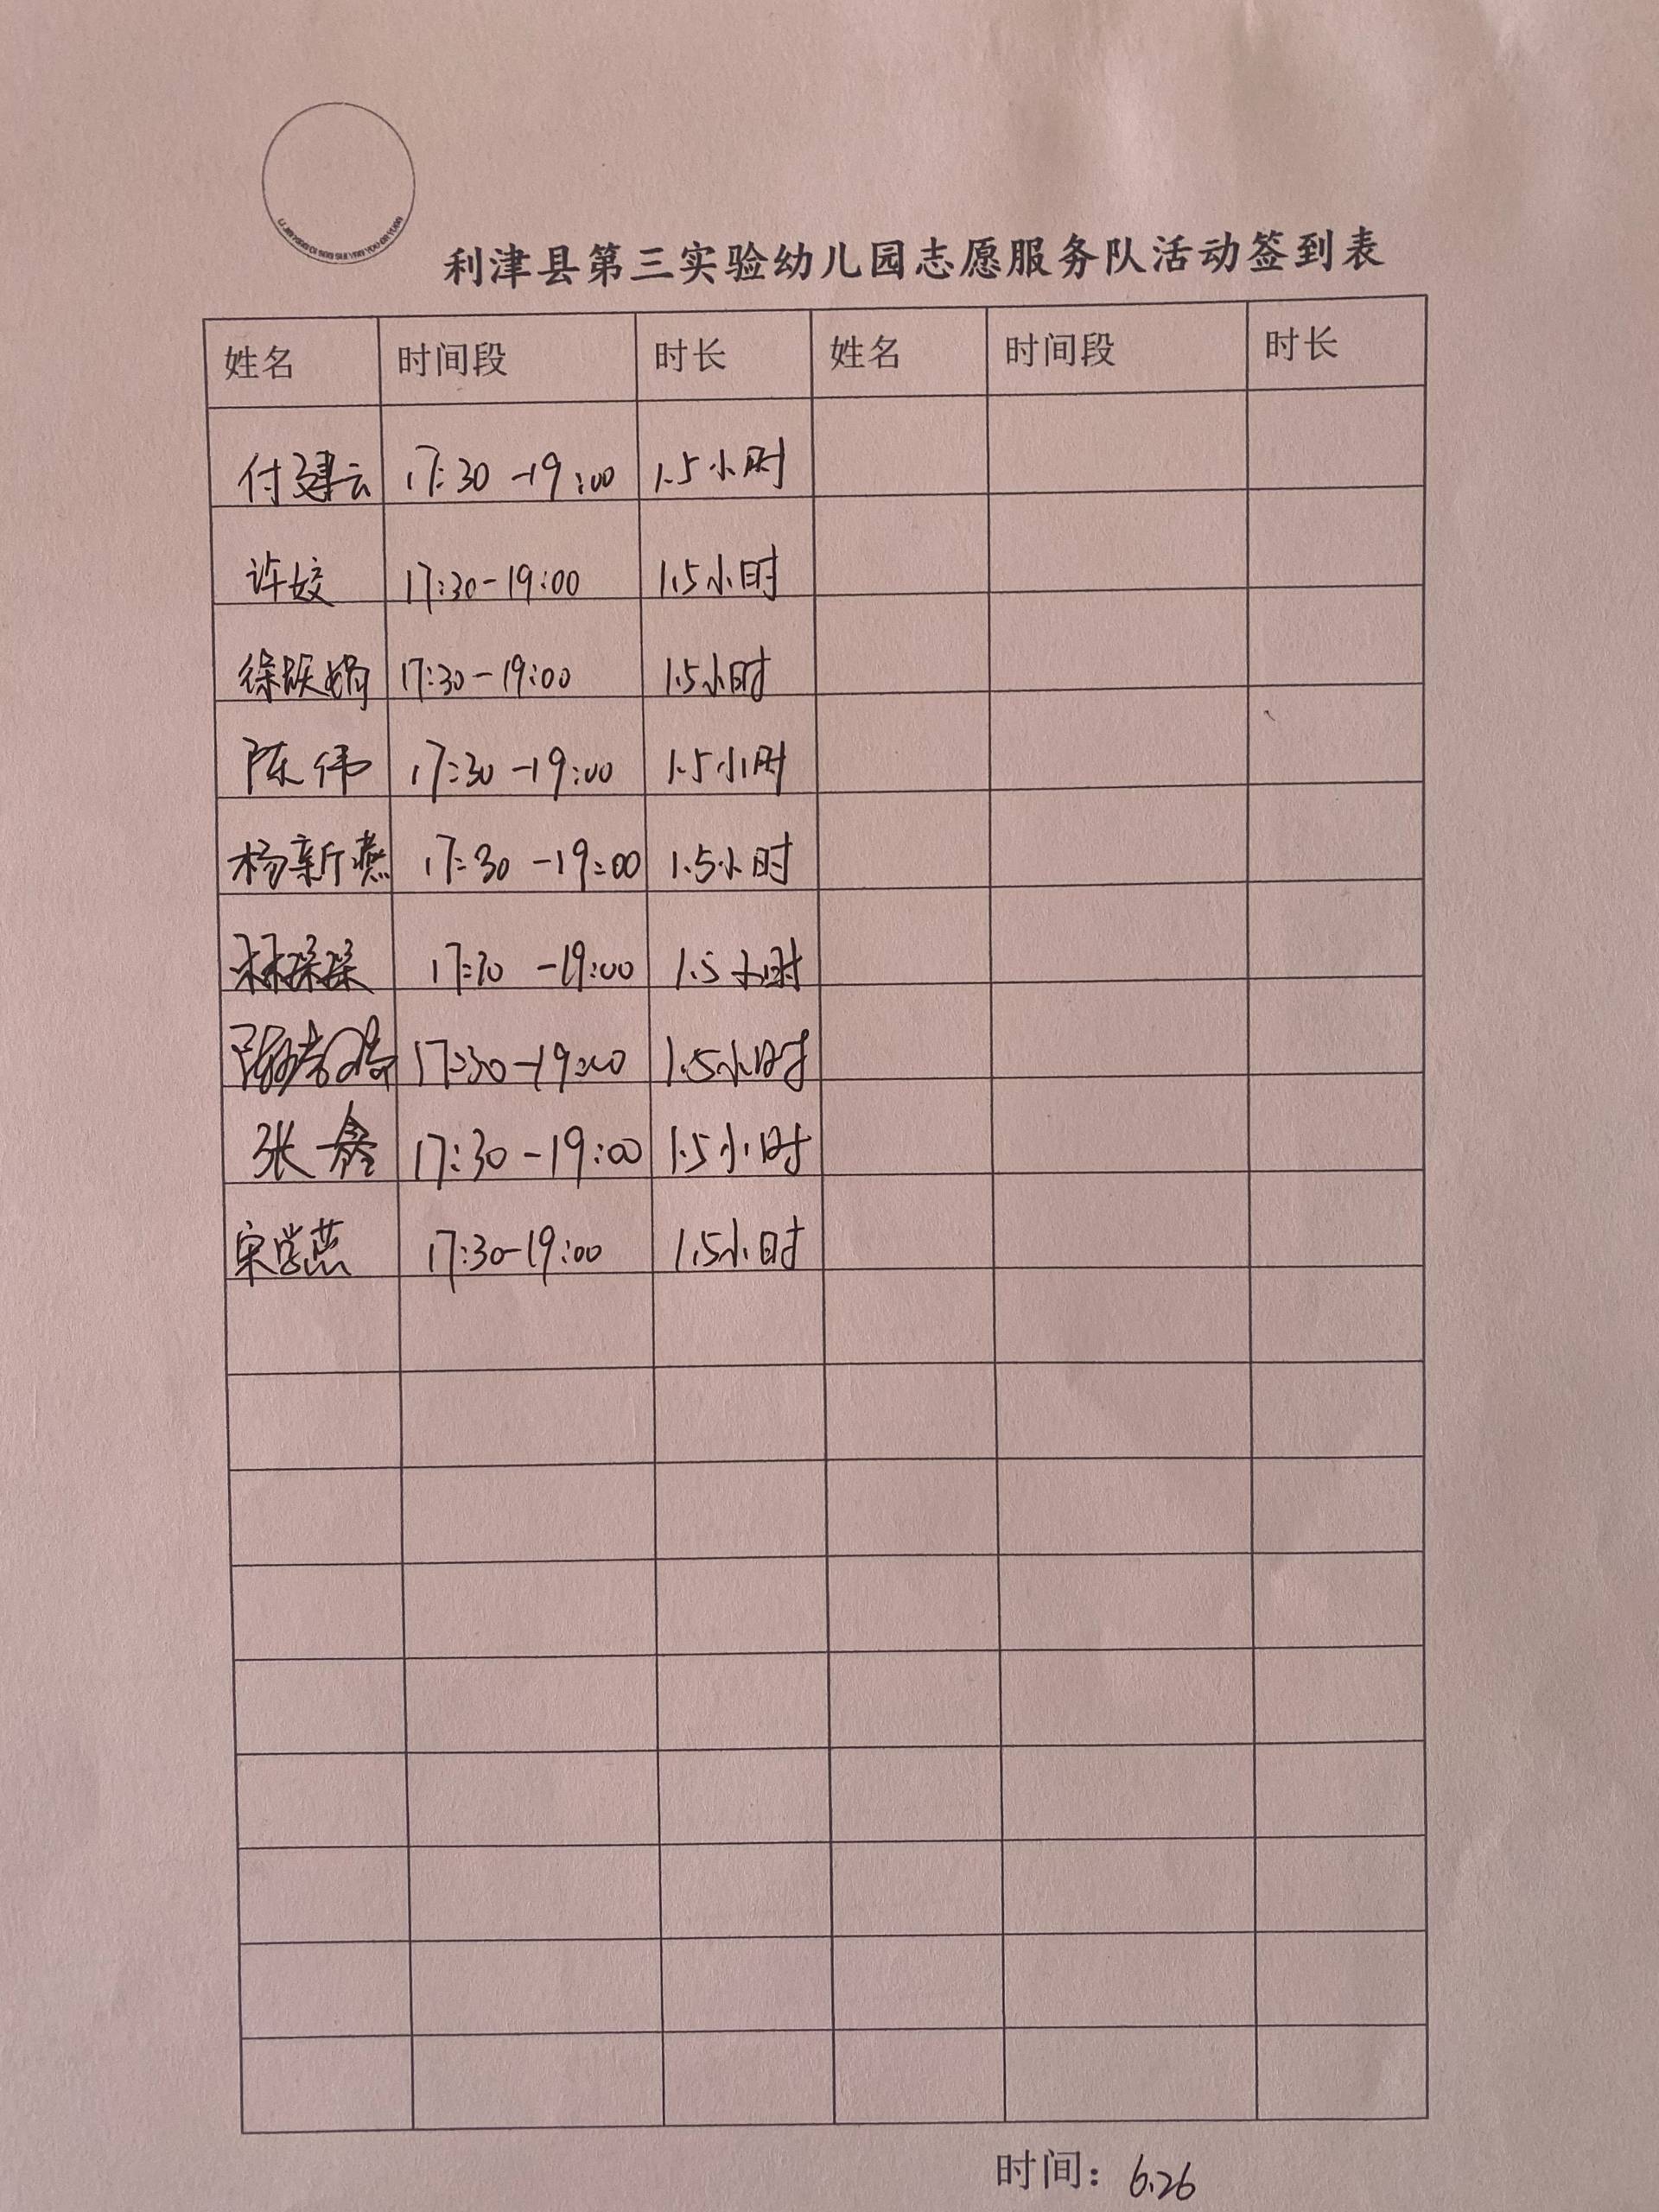 利津县第三实验幼儿园志愿服务队活动签到表
姓名 时间段 时长 姓名 时间段 时长
付建云 17:30-19:00 1.5小时
许姣 17:30-19:00 1.5小时
徐跃娟 17:30-19:00 1.5小时
陈伟 17:30-19:00 1.5小时
杨新燕 17:30-19:00 1.5小时
林琛琛 17:30-19:00 1.5小时
17:30-19:00 1.5小时
张鑫 17:30-19:00 1.5小时
宋学燕 17:30-19:00 1.5小时
时间：6.26